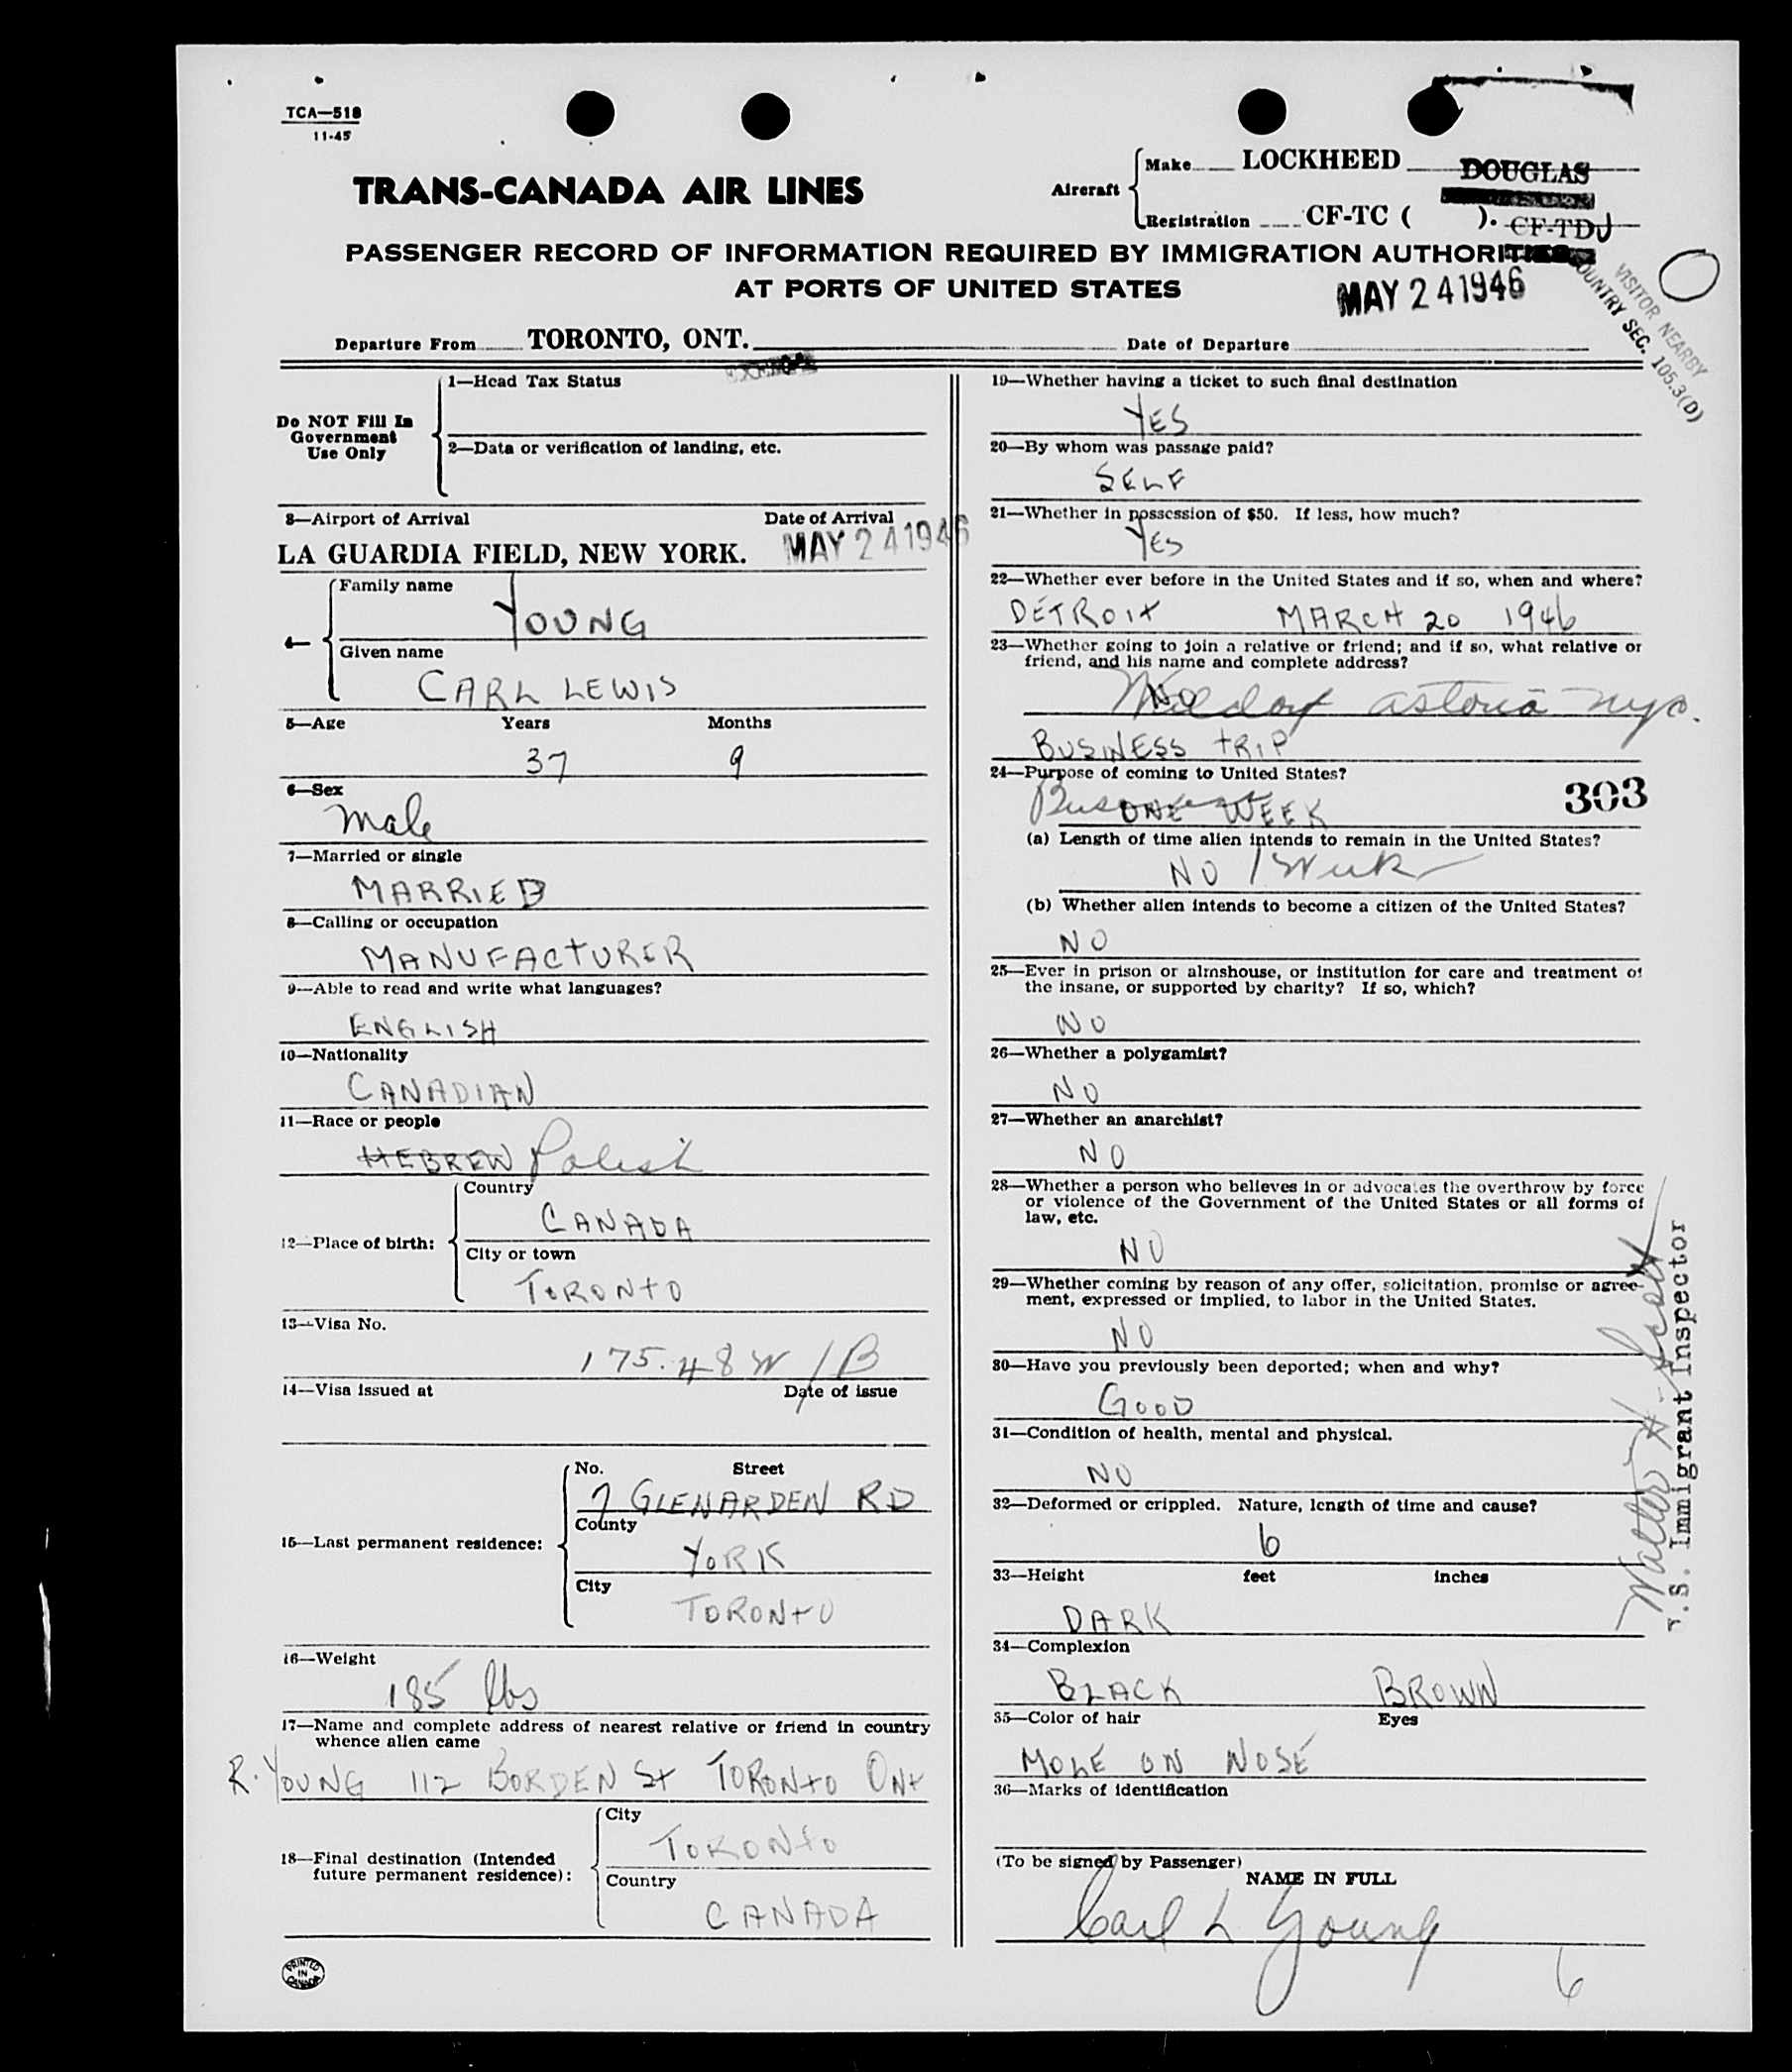 TCA—518
11-45
TRANS-CANADA AIR LINES
Aircraft
Make LOCKHEED DOUGLAS
Registration CF-TC ( ). CF-TDJ
PASSENGER RECORD OF INFORMATION REQUIRED BY IMMIGRATION AUTHORITIES
AT PORTS OF UNITED STATES
MAY 24 1946
VISITOR NEARBY
COUNTRY SEC. 105.3(D)
Departure From TORONTO, ONT. Date of Departure
Do NOT Fill In
Government
Use Only
1—Head Tax Status
2—Data or verification of landing, etc.
3—Airport of Arrival Date of Arrival
LA GUARDIA FIELD, NEW YORK. MAY 24 1946
4—
Family name
YOUNG
Given name
CARL LEWIS
5—Age Years Months
37 9
6—Sex
Male
7—Married or single
MARRIED
8—Calling or occupation
MANUFACTURER
9—Able to read and write what languages?
ENGLISH
10—Nationality
CANADIAN
11—Race or people
HEBREW Polish
12—Place of birth:
Country
CANADA
City or town
TORONTO
13—Visa No.
175.48 W / B
14—Visa issued at Date of issue
15—Last permanent residence:
No. Street
7 GLENARDEN RD
County
YORK
City
TORONTO
16—Weight
185 lbs
17—Name and complete address of nearest relative or friend in country
whence alien came
R. YOUNG 112 BORDEN St TORONTO ONt
18—Final destination (Intended
future permanent residence):
City
TORONTO
Country
CANADA
PRINTED
IN
CANADA
19—Whether having a ticket to such final destination
YES
20—By whom was passage paid?
SELF
21—Whether in possession of $50. If less, how much?
YES
22—Whether ever before in the United States and if so, when and where?
DETROIT MARCH 20 1946
23—Whether going to join a relative or friend; and if so, what relative or
friend, and his name and complete address?
NO astoria nyc.
BUSINESS TRIP
24—Purpose of coming to United States?
303
ONE WEEK
(a) Length of time alien intends to remain in the United States?
NO 1 Week
(b) Whether alien intends to become a citizen of the United States?
NO
25—Ever in prison or almshouse, or institution for care and treatment of
the insane, or supported by charity? If so, which?
NO
26—Whether a polygamist?
NO
27—Whether an anarchist?
NO
28—Whether a person who believes in or advocates the overthrow by force
or violence of the Government of the United States or all forms of
law, etc.
NO
29—Whether coming by reason of any offer, solicitation, promise or agree-
ment, expressed or implied, to labor in the United States.
NO
30—Have you previously been deported; when and why?
GOOD
31—Condition of health, mental and physical.
NO
32—Deformed or crippled. Nature, length of time and cause?
6
33—Height feet inches
DARK
34—Complexion
BLACK BROWN
35—Color of hair Eyes
MOLE ON NOSE
36—Marks of identification
(To be signed by Passenger)
NAME IN FULL
Carl L Young
6
Walter H.
U.S. Immigrant Inspector